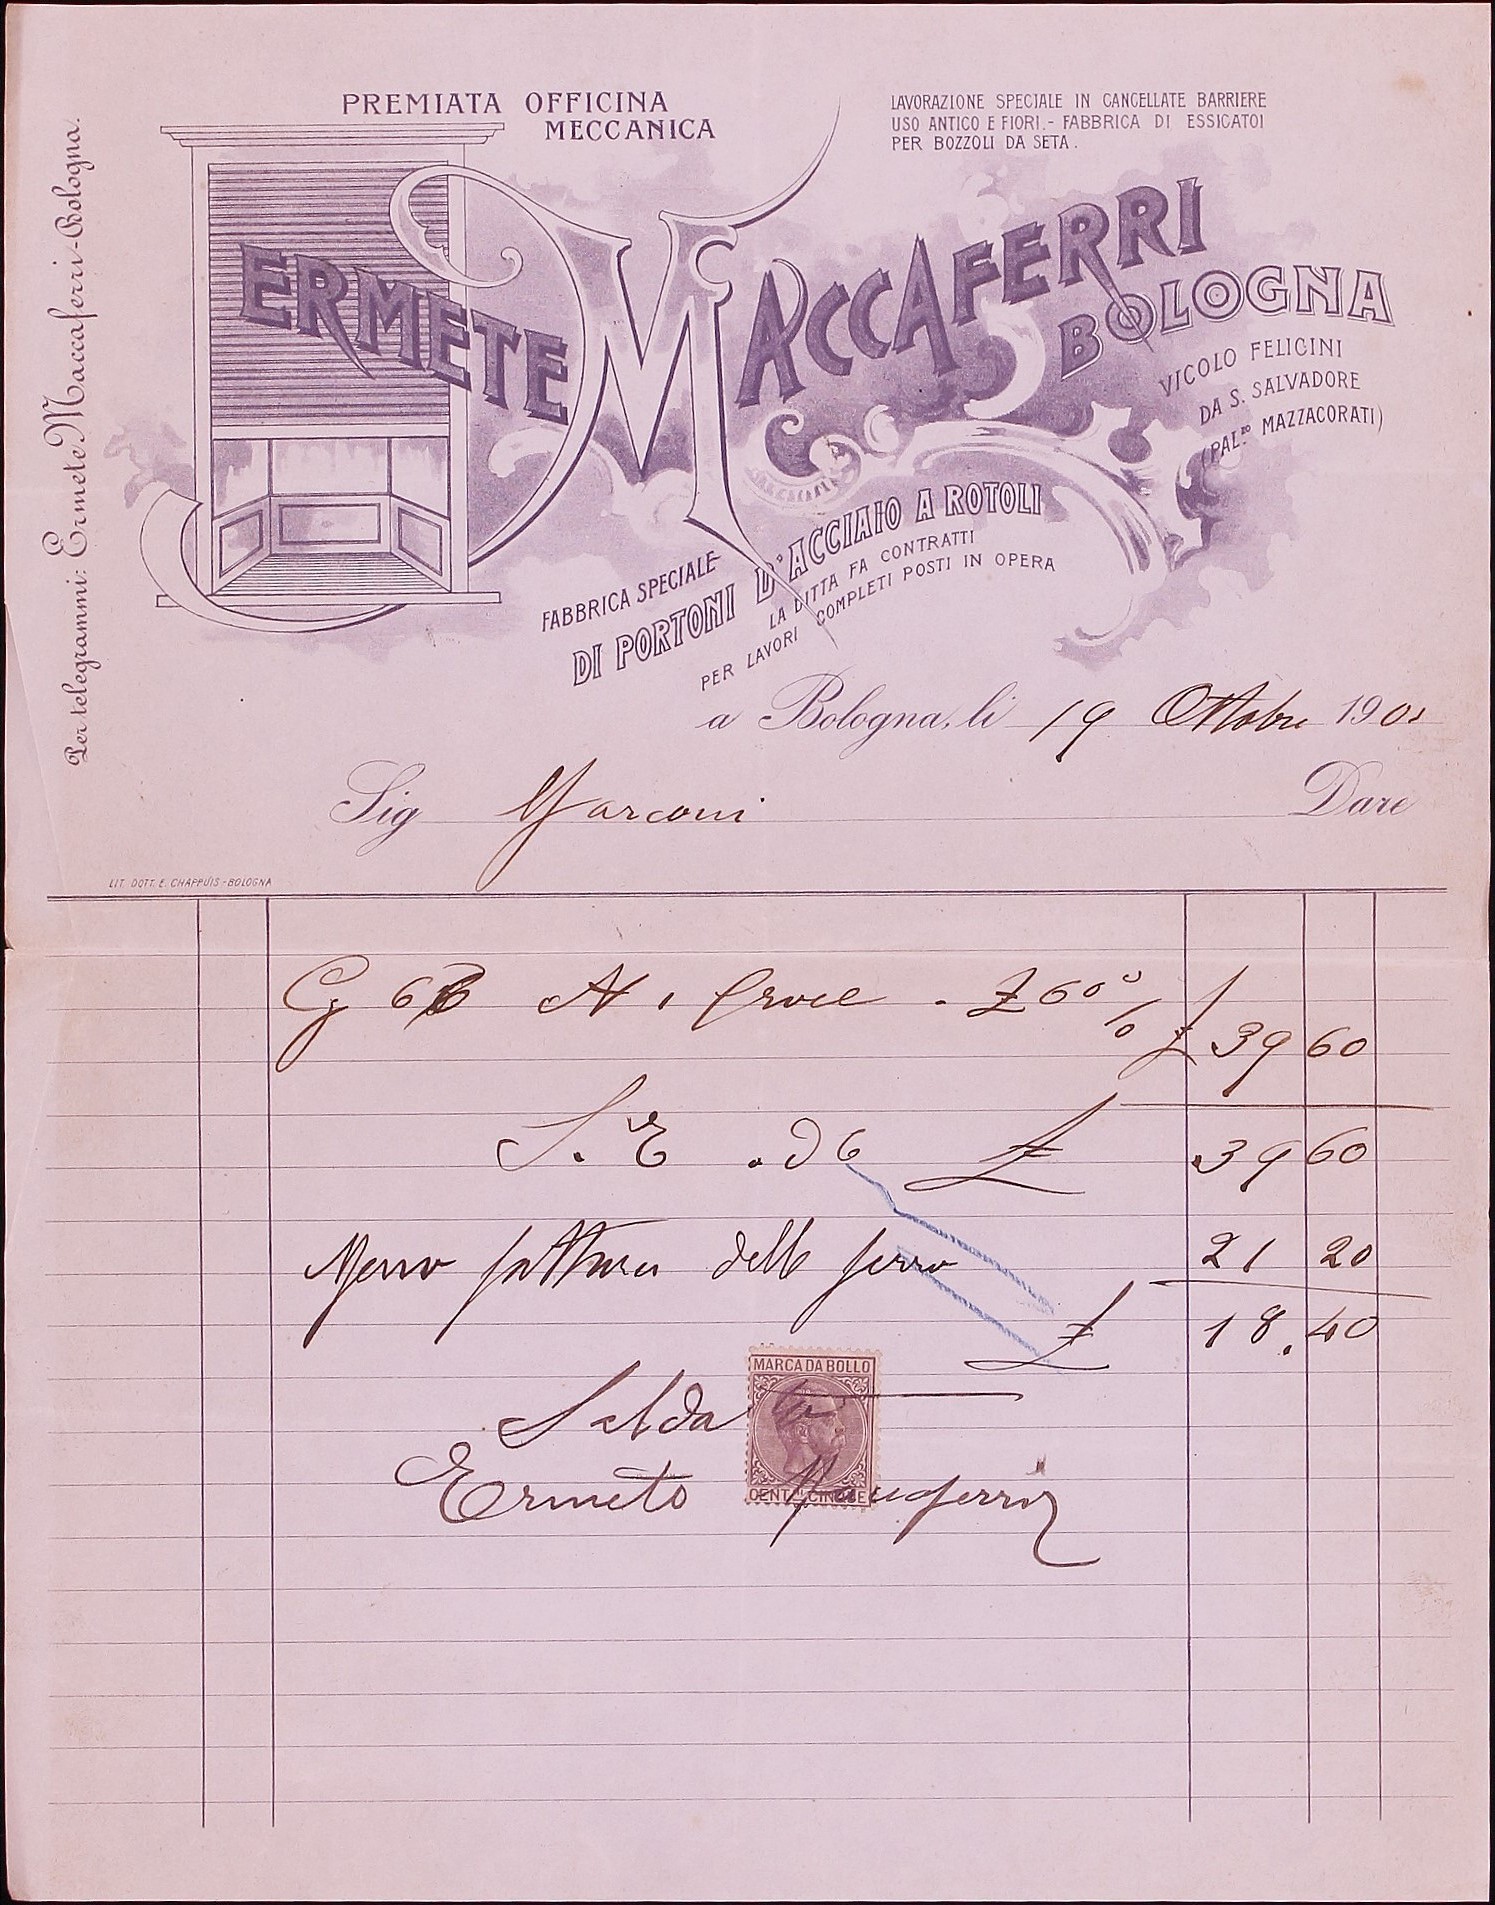 PREMIATA OFFICINA
MECCANICA
LAVORAZIONE SPECIALE IN CANCELLATE BARRIERE
USO ANTICO E FIORI.- FABBRICA DI ESSICATOI
PER BOZZOLI DA SETA.
Per telegrammi: Ermete Maccaferri-Bologna.
ERMETE MACCAFERRI
BOLOGNA
VICOLO FELICINI
DA S. SALVADORE
(PAL.zo MAZZACORATI)
FABBRICA SPECIALE
DI PORTONI D'ACCIAIO A ROTOLI
LA DITTA FA CONTRATTI
PER LAVORI COMPLETI POSTI IN OPERA
a Bologna, li 19 Ottobre 190
Sig Marconi Dare
LIT. DOTT. E. CHAPPUIS - BOLOGNA
Cg 66 60 % £ 39 60
S. E. £ 39 60
Meno fattura dello ferro 21 20
£ 18.40
MARCA DA BOLLO
Saldato
Ermete Maccaferri
CENT. CINQUE